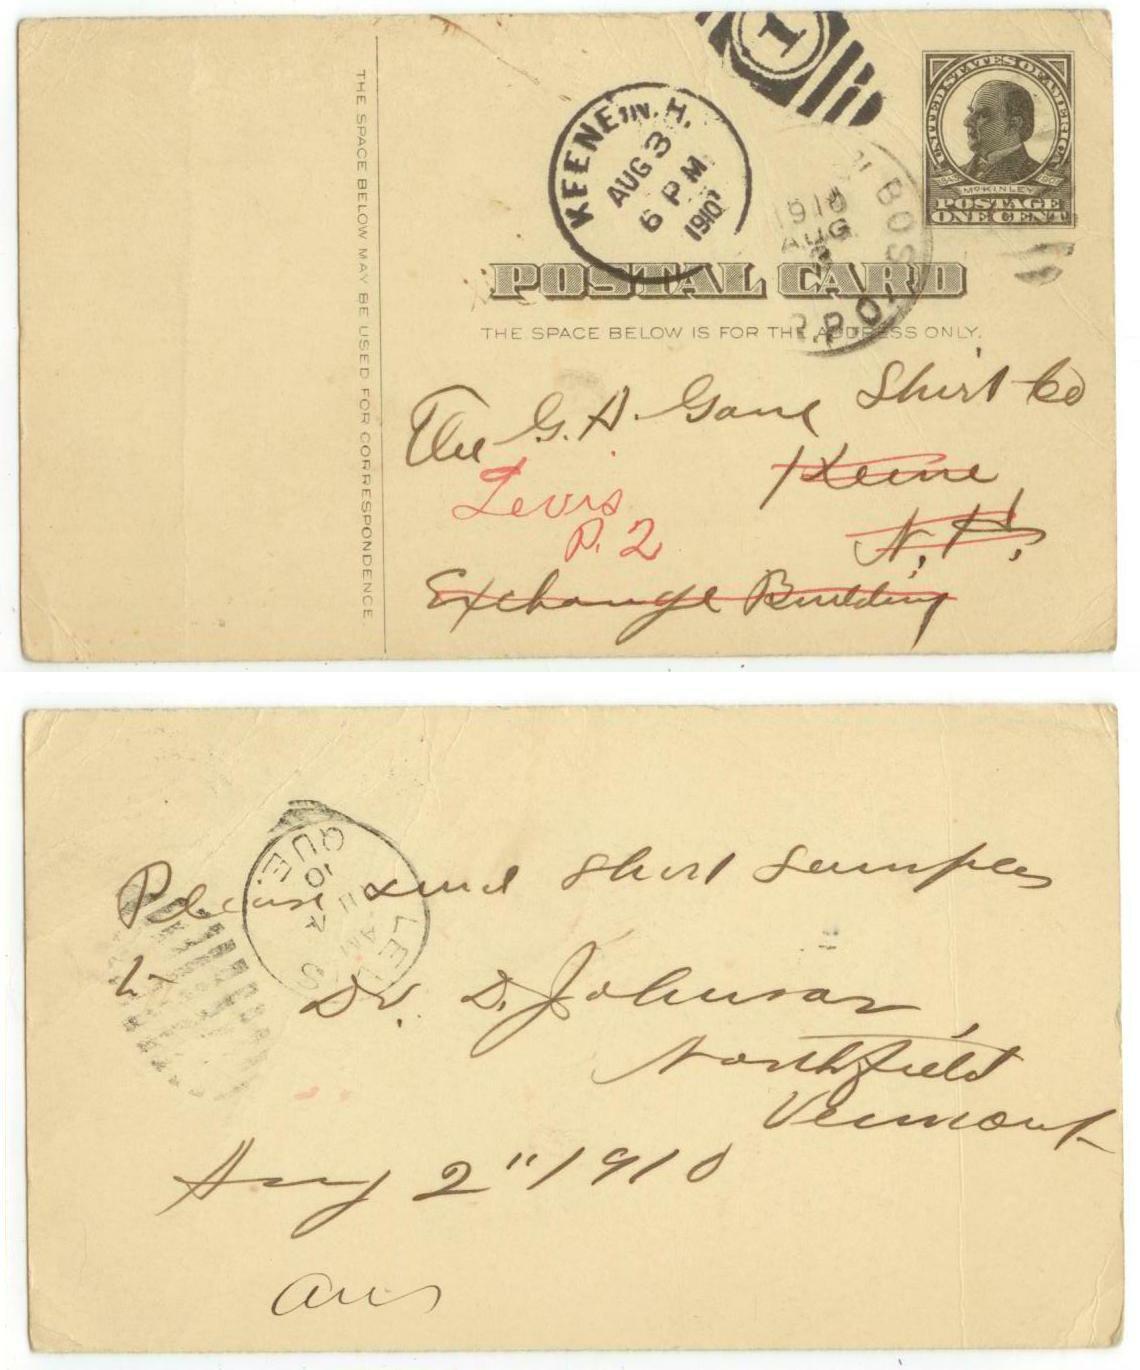 THE SPACE BELOW MAY BE USED FOR CORRESPONDENCE.
1
KEENE, N.H.
AUG 3
6 PM
1910
BOS.
1910
AUG
3
R.P.O.
UNITED STATES OF AMERICA
McKINLEY
POSTAGE
ONE CENT
POSTAL CARD
THE SPACE BELOW IS FOR THE ADDRESS ONLY.
The G. H. Gane Shirt Co
Keene
N. H.
Levis
P. 2
Exchange Building
LEVIS
QUE.
AM
10
Please send Shirt Samples
to Dr. D. Johnson,
Northfield
Vermont
Aug 2" 1910
Ans